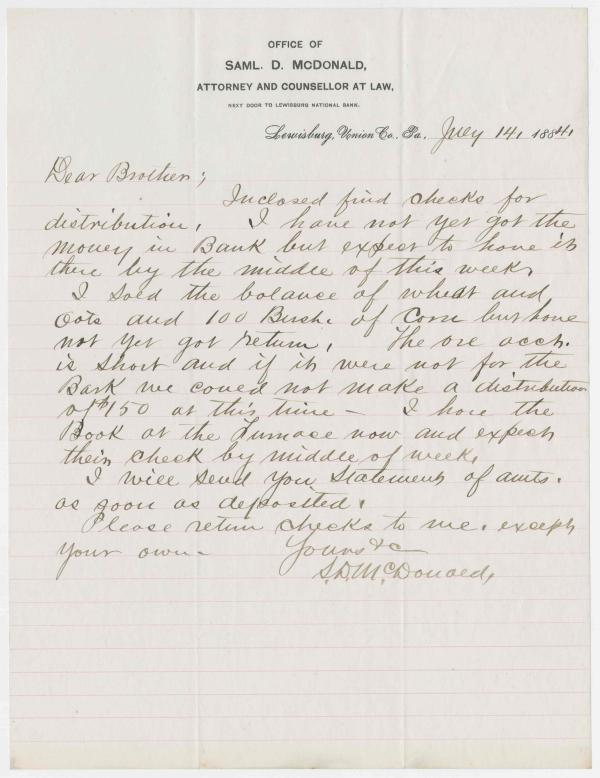 OFFICE OF
SAML. D. McDONALD,
ATTORNEY AND COUNSELLOR AT LAW,
NEXT DOOR TO LEWISBURG NATIONAL BANK.
Lewisburg, Union Co., Pa., July 14, 1884,
Dear Brother;
Inclosed find checks for
distribution, I have not yet got the
money in Bank but expect to have it
there by the middle of this week,
I sold the balance of wheat and
Oats and 100 Bush. of Corn but have
not yet got return, The ore acct.
is short and if it were not for the
Bark we could not make a distribution
of $150 at this time - I have the
Book at the Furnace now and expect
their check by middle of week,
I will send you statement of amts.
as soon as deposited.
Please return checks to me. except
your own-
Yours &c
S. D. McDonald,